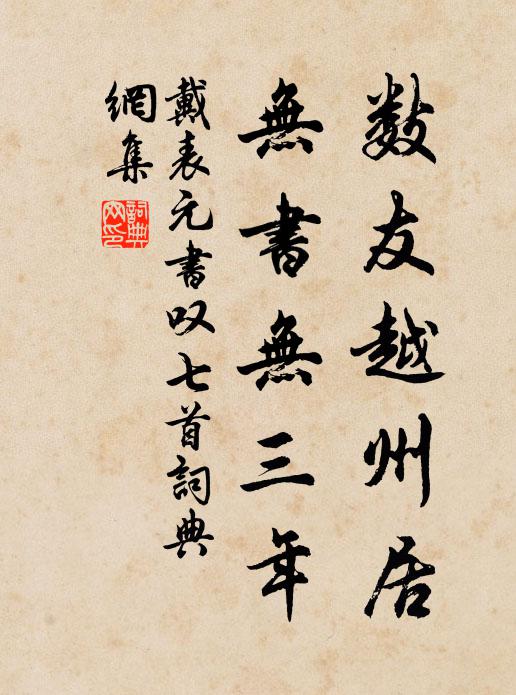 数友越州居
無書無三年
戴表元書叹七首詞典
網集
詞典网印